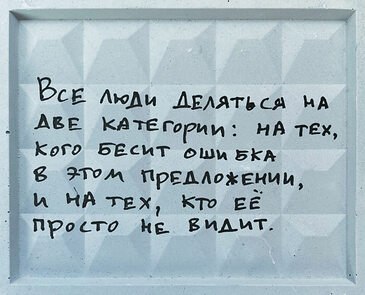 Все люди деляться на
две категории: на тех,
кого бесит ошибка
в этом предложении,
и на тех, кто её
просто не видит.